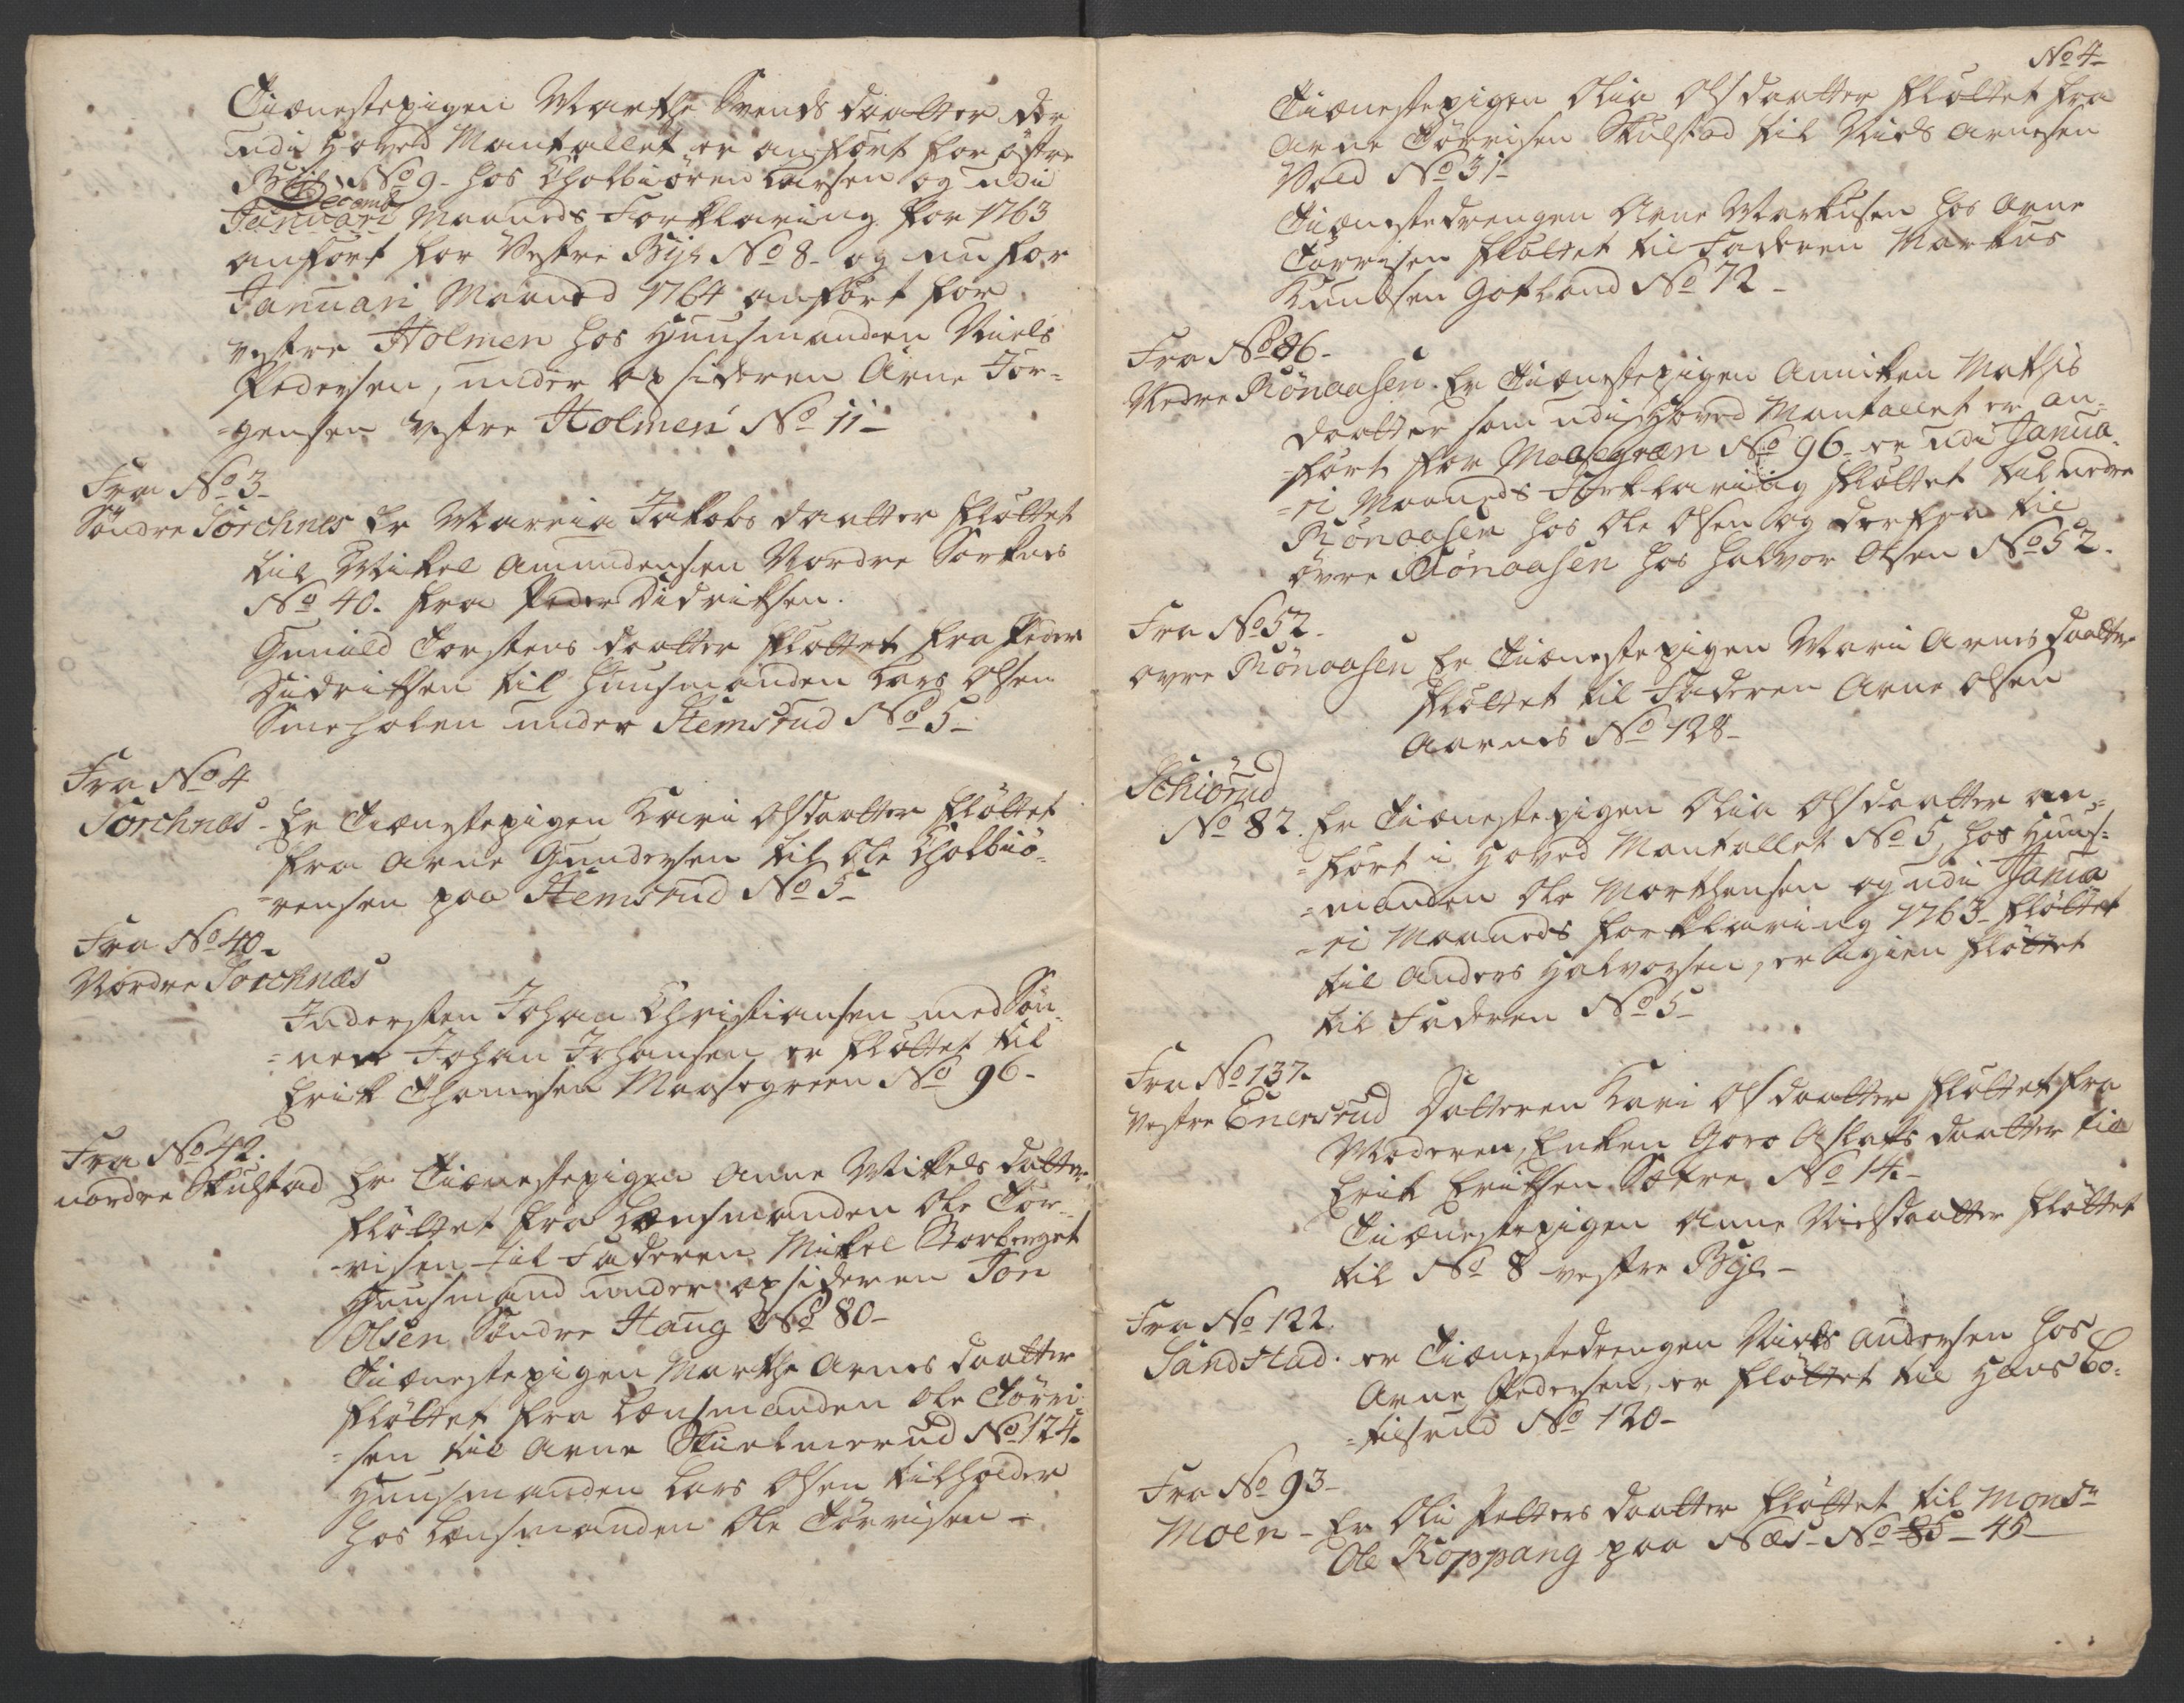 Tiænestepigen Marthe Svends daatter der
udi Hoved Mantallet er anført for østre
Bye No 9- hos Tholbiören Larsen og udi
Decemb
Januari Maaneds Forklaring for 1763
anført for Vestre Bye No 8- og nu for
Januari Maaned 1764 anført for
vestre Holmen hos Huusmanden Niels
Pedersen, under opsideren Arne Jör-
-gensen vestre Holmen No 11-
Fra No 3-
Söndre Sorchnes Er Marria Jakobs daatter fløttet
til Mikel Amundensen Nordre Sorknes
No 40. fra Peder Didriksen.
Gunild Torstens daatter fløttet fra Peder
Didriksen til Huusmanden Lars Olsen
Smeholen under Stemsrud No 5-
Fra No 4
Sorchnes- Er Tiænestepigen Kari Olsdaatter fløttet
fra Arne Gundersen til Ole Tholbiö-
-rensen paa Stemsrud No 5-
Fra No 40-
Nordre Sorchnæs
Indersten Johan Christiansen med Søn-
-nen Johan Johansen er fløttet til
Erik Thomesen Maasegreen No 96-
Fra No 42.
nordre Skulstad Er Tiænestepigen Anne Mikels datter
fløttet fra Lænsmanden Ole Tör-
-risen til Faderen Mikel Storberget
Huusmand under opsideren Jon
Olsen Söndre Haug No 80-
Tiænestepigen Marthe Arnes daatter
fløttet fra Lænsmanden Ole Törri-
-sen til Arne Skielmerud No 124.
Huusmanden Lars Olsen tilholder
hos Lænsmanden Ole Törrisen-
No 4-
Tiænestepigen Olia Olsdaatter fløttet fra
Arne Törrisen Skulstad til Niels Arnesen
Vold No 31-
Tiænestedrengen Arne Markusen hos Arne
Törrisen fløttet til Faderen Markus
Knudsen Gotland No 72-
Fra No 86-
Nedre Rönaasen. Er Tiænestepigen Anniken Mathis
daatter som udi Hoved Mantallet er an-
-fört for Maasegræn No 96- er udi Janua-
-ri Maaneds Forklaring fløttet til nedre
Rönaasen hos Ole Olsen og derfra til
övre Rönaasen hos Halvor Olsen No 52.
Fra No 52-
ovre Rönaasen Er Tiænestepigen Mari Arnes daatter
fløttet til Faderen Arne Olsen
Aarnes No 128-
Schiörud
No 82. Er Tiænestepigen Olia Olsdaatter an-
-fört i Hoved Mantallet No 5, hos Huus-
-manden Ole Morthensen og udi Janua
-ri Maaneds forklaring 1763- fløttet
til Anders Halvorsen, er igien fløttet
til Faderen No 5-
Fra No 137.
Vestre Enersrud Datteren Kari Olsdaatter fløttet fra
Moderen, Enken Goro Aslaks daatter til
Erik Eriksen Sætre No 14-
Tiænestepigen Anne Nielsdaatter fløttet
til No 8 vestre Bye-
Fra No 122.
Sandstad. er Tiænestedrengen Niels Andersen hos
Arne Pedersen, er fløttet til Hans Bo-
-tilsrud No 120-
Fra No 93-
Moen- Er Oli Petters daatter fløttet til Monsr
Ole Koppang paa Næs- No 85- 45-